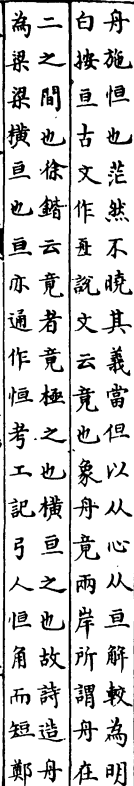 舟施恒也茫然不曉其義當但以从心从亘解較為明
白按亘古文作𠄢說文云竟也象舟竟兩岸所謂舟在
二之間也徐鍇云竟者竟極之也橫亘之也故詩造舟
為梁梁橫亘也亘亦通作恒考工記弓人恒角而短鄭